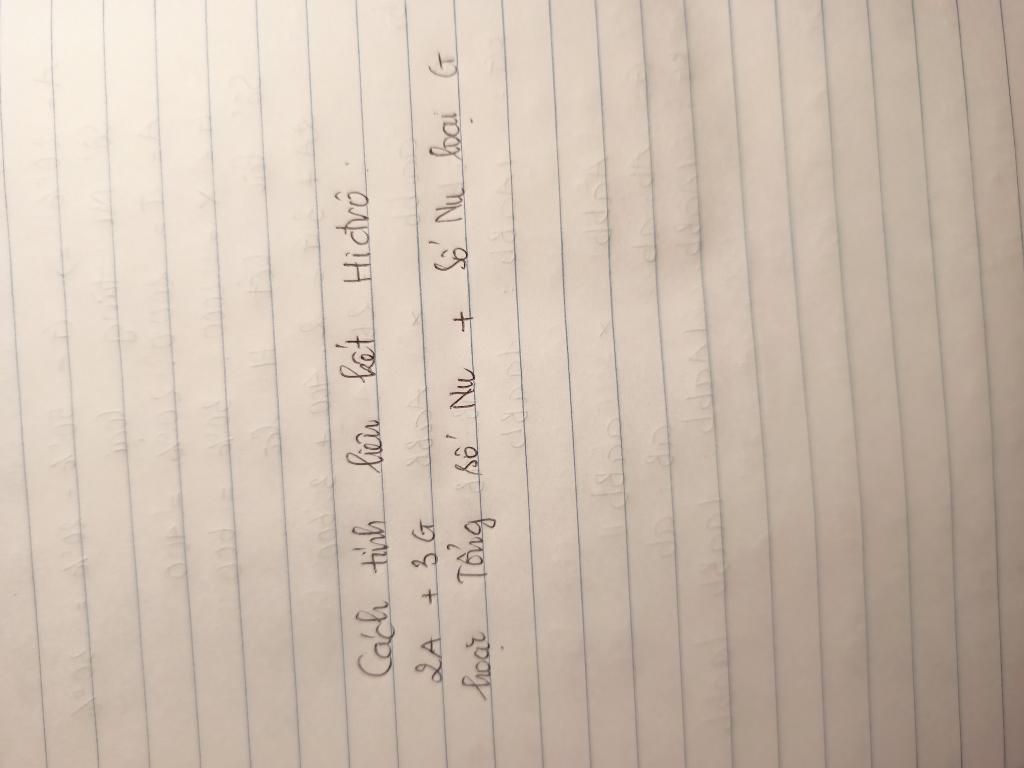 Cách tính liên kết Hiđrô.
2A + 3G
hoặc Tổng số Nu + số Nu loại G